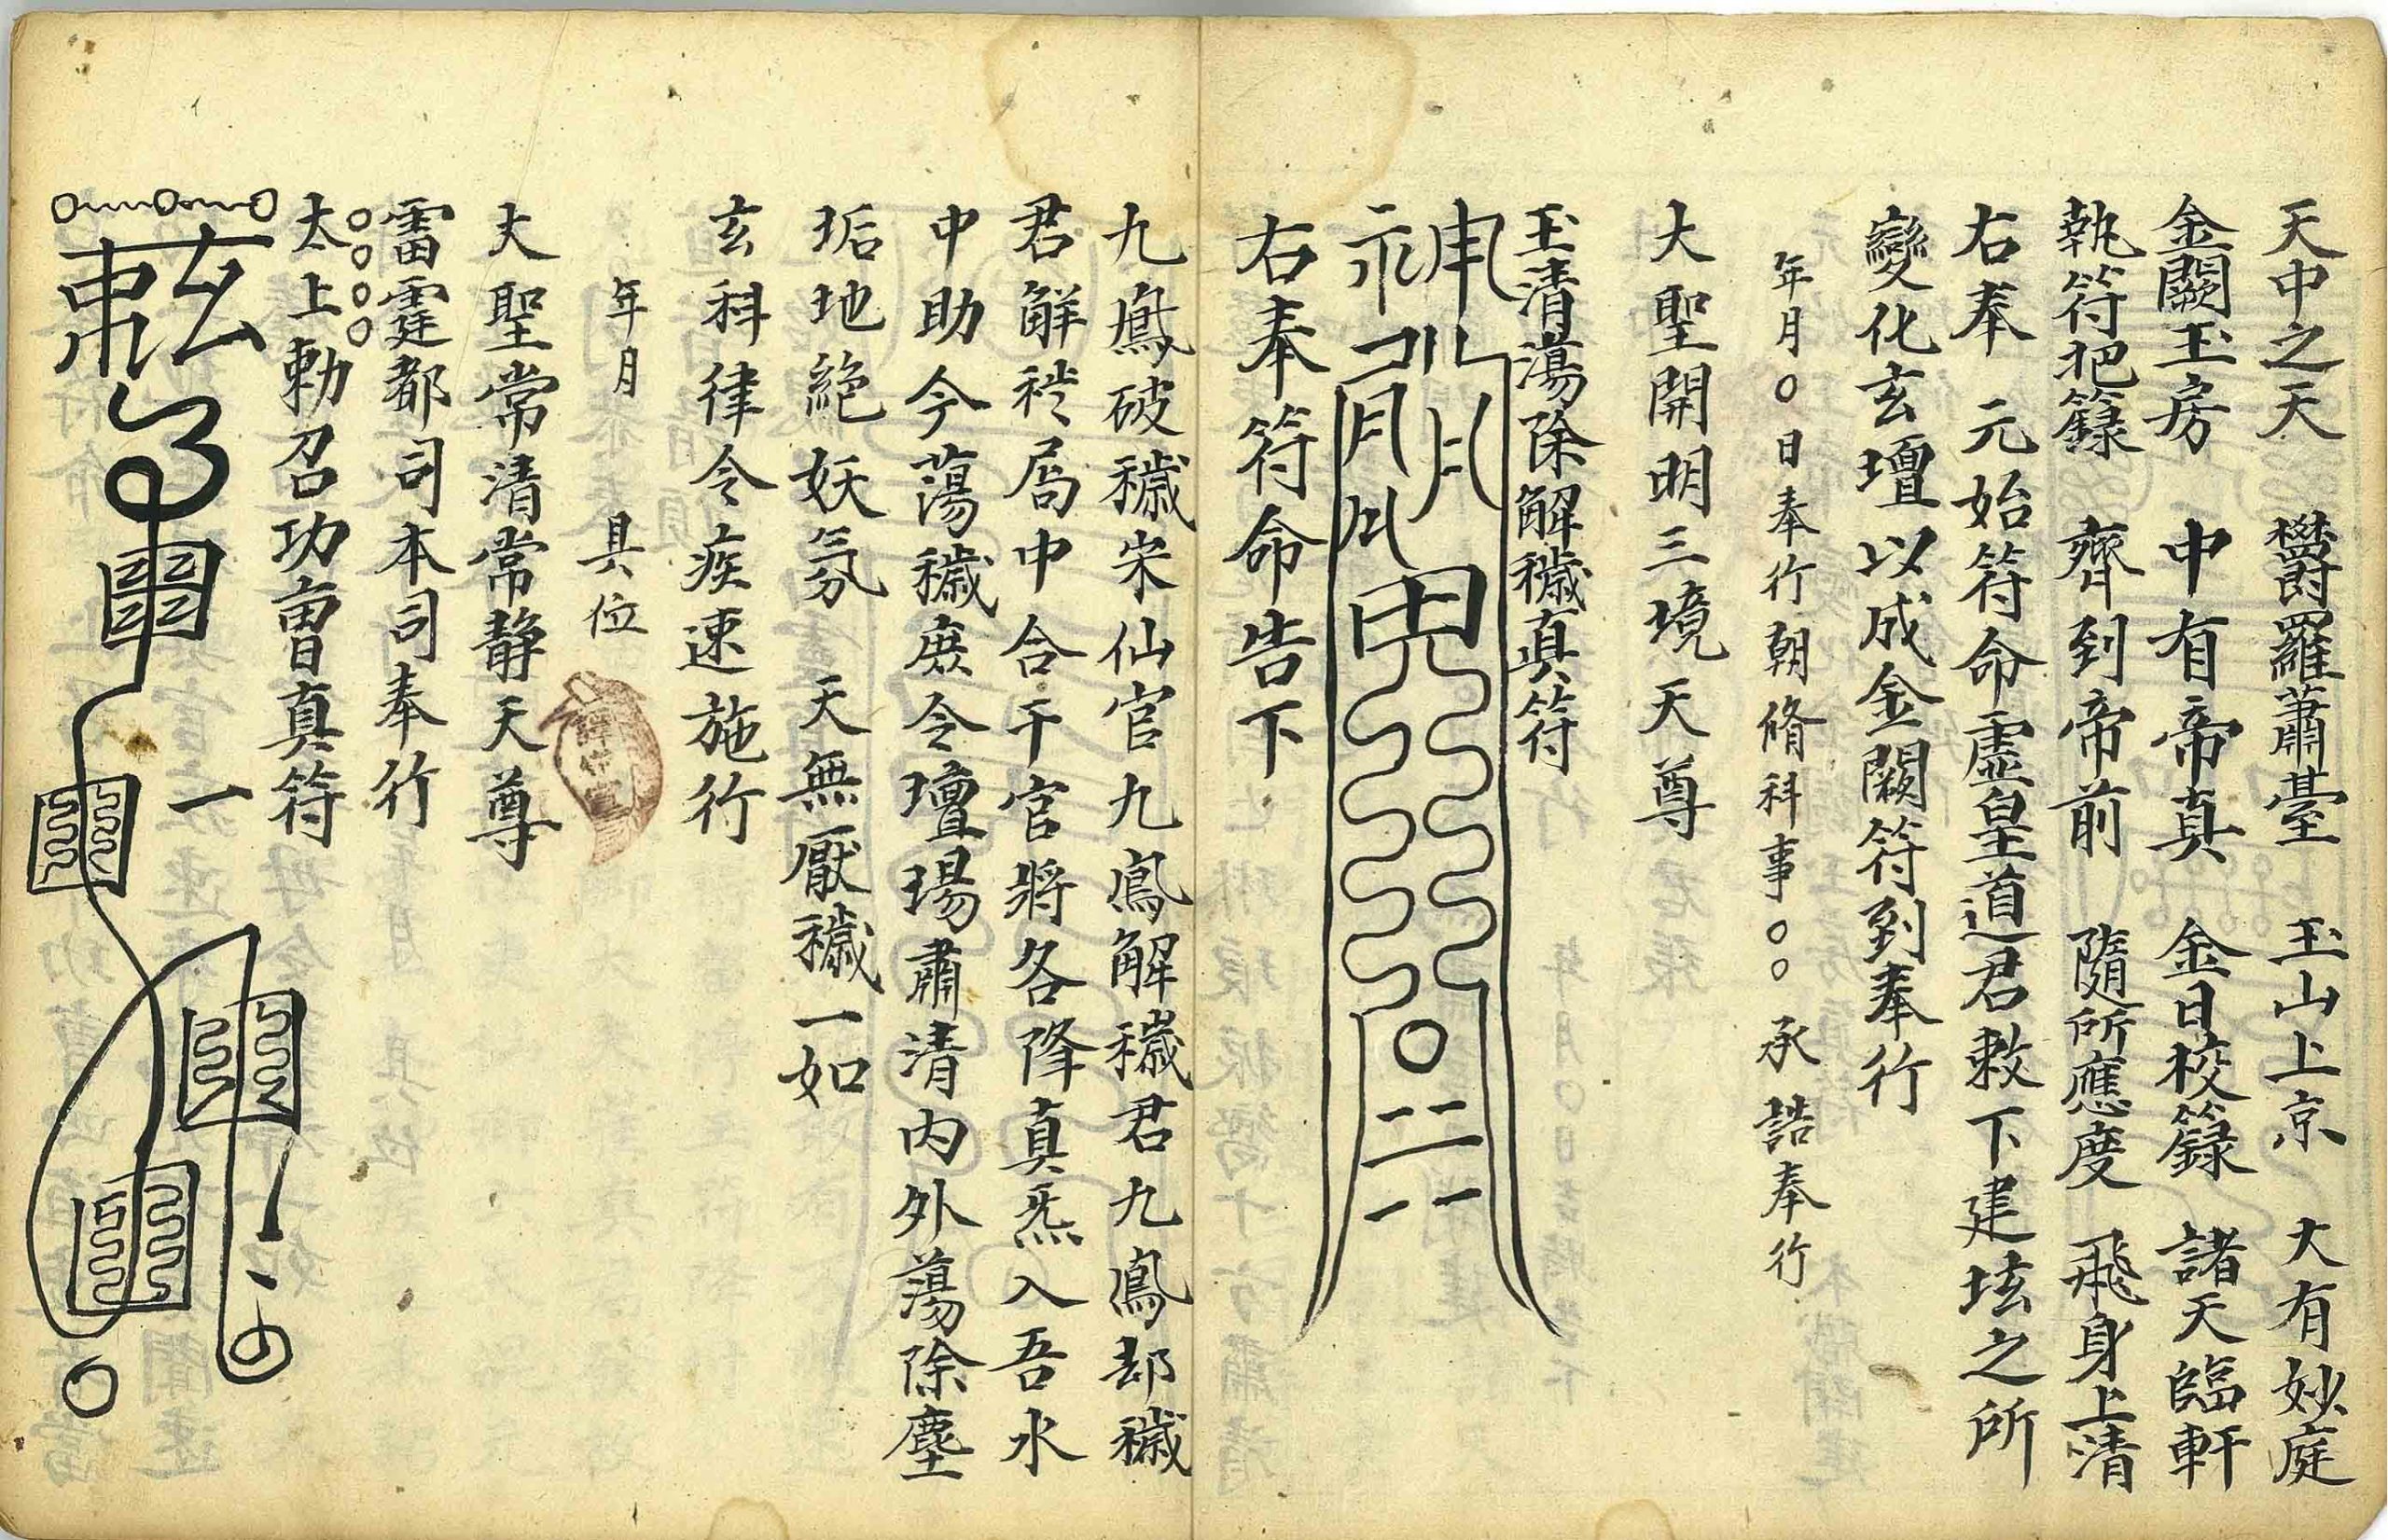 天中之天　欝羅蕭臺　玉山上京　大有妙庭
金闕玉房　中有帝真　金日校籙　諸天臨軒
執符把籙　齊到帝前　隨所應度　飛身上清
右奉　元始符命虛皇道君敕下建坛之所
變化玄壇以成金闕符到奉行
年月〇日奉行朝脩科事〇〇承誥奉行
大聖開明三境天尊
玉清蕩除解穢真符
右奉符命告下
九鳳破穢宋仙官九鳳解穢君九鳳却穢
君解秽局中合干官將各降真炁入吾水
中助今蕩穢庶令壇場肅清內外蕩除塵
垢地絕妖氛　天無厭穢一如
玄科律令疾速施行
年月　　具位
大聖常清常静天尊
雷霆都司本司奉行
〇〇〇〇
太上勅召功曹真符